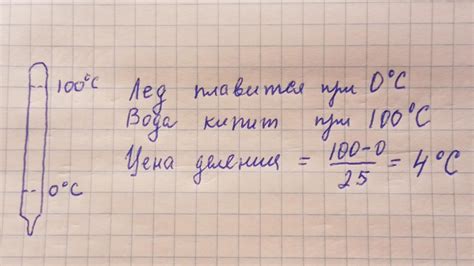 100°C
0°C
Лед плавится при 0°C
Вода кипит при 100°C
Цена деления = 100-0 / 25 = 4°C